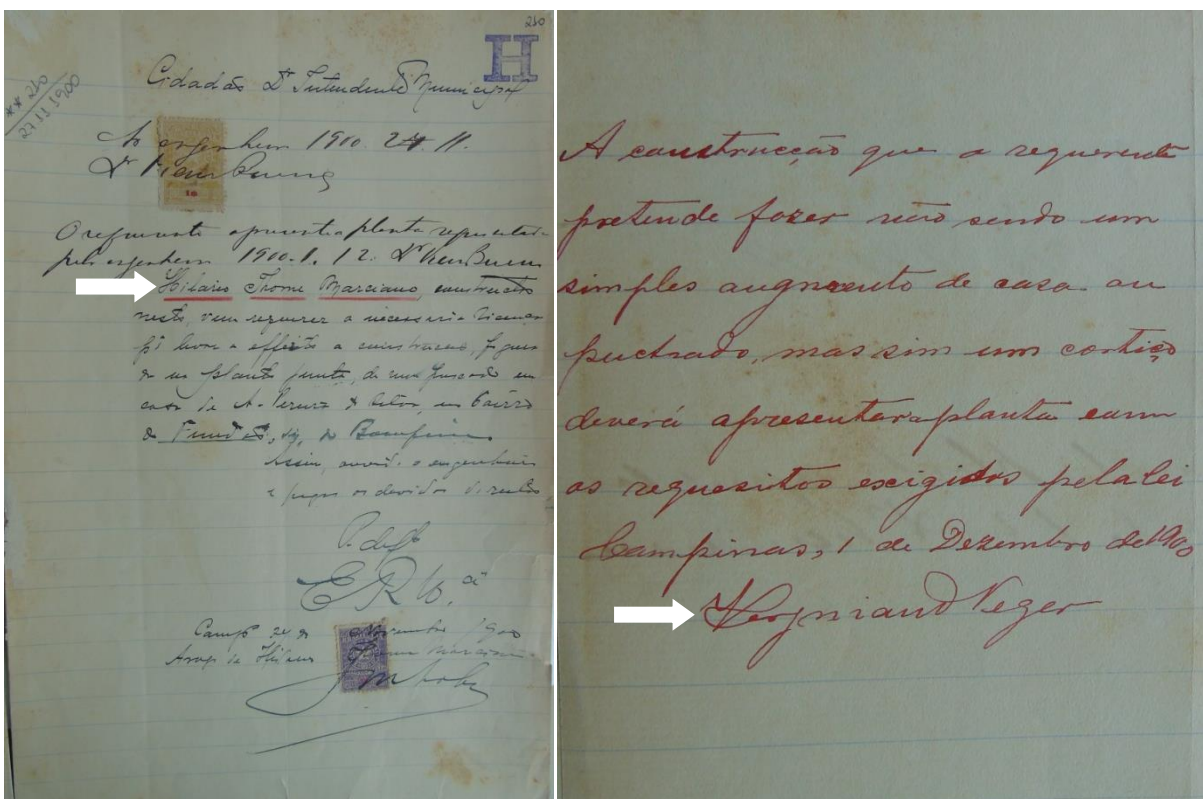 210
H
Cidadão Dr. Intendente Municipal
** 210
27.11.1900
Ao engenheiro 1900. 24. 11.
Dr
O requerente apresente planta
pelo engenheiro 1900. 1. 12. Dr
Hilario Thome Marciano, constructor
nesta, vem requerer a necessaria licença
pª levar a effeito a construcção,
na planta junta, de um puxado em
casa de A. no bairro
do
Assim, ouvido o engenheiro
e pagos os devidos direitos
P. deft.
E. R. M.cê
Campª 24 de Novembro 1900
Arogo de Hilario Thome Marciano
A construcção que o requerente
pretende fazer não sendo um
simples augmento de casa ou
puchado, mas sim um cortiço
deverá apresentar planta com
os requesitos exigidos pela lei
Campinas, 1 de Dezembro de 1900
Vergniaud Neger